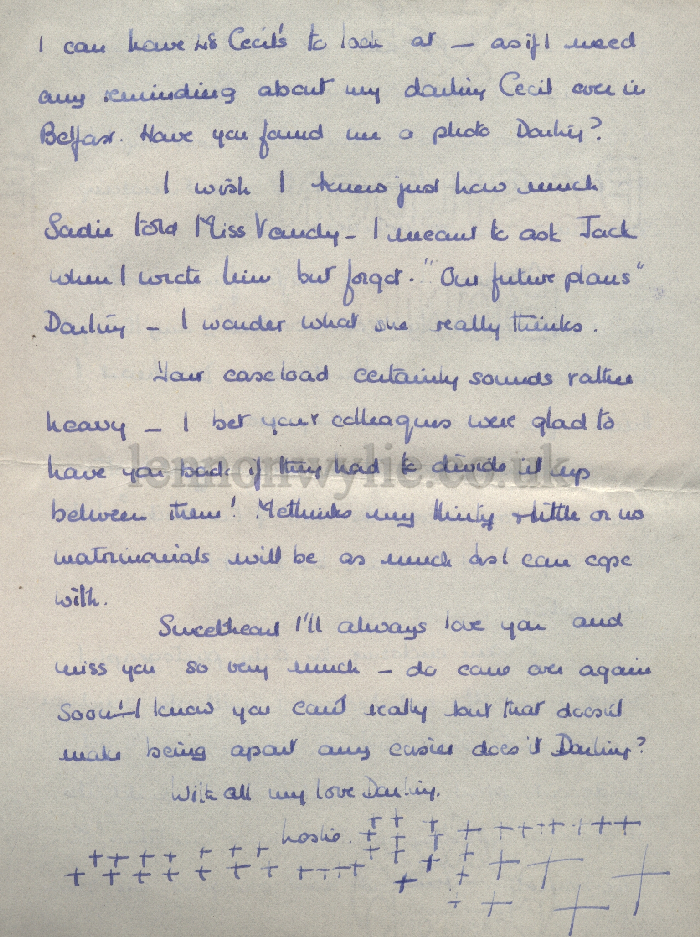 I can have 48 Cecil's to look at – as if I need
any reminding about my darling Cecil over in
Belfast. Have you found me a photo Darling?
I wish I knew just how much
Sadie told Miss Vandy – I meant to ask Jack
when I wrote him but forgot. "Our future plans"
Darling – I wonder what she really thinks.
Your caseload certainly sounds rather
heavy – I bet your colleagues were glad to
have you back if they had to divide it up
between them! Methinks my thirty & little or no
matrimonials will be as much as I can cope
with.
lennonwylie.co.uk
Sweetheart I'll always love you and
miss you so very much – do come over again
soon – I know you can't really but that doesn't
make being apart any easier does it Darling?
With all my love Darling.